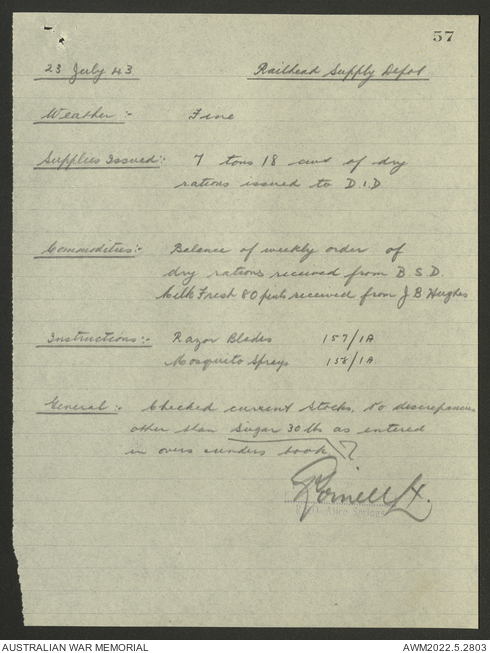 57
23 July 43 Railhead Supply Depot
Weather :- Fine
Supplies Issued:- 7 tons 18 cwt of dry
rations issued to D.I.D
Commodities:- Balance of weekly order of
dry rations received from B.S.D.
Milk Fresh 80 pints received from J B Hughes
Instructions:- Razor Blades 157/1A
Mosquito Sprays 158/1A.
General:- Checked current Stocks. No discrepancies
other than Sugar 30 lbs as entered
in overs & unders book ?
Alice Springs
AUSTRALIAN WAR MEMORIAL AWM2022.5.2803